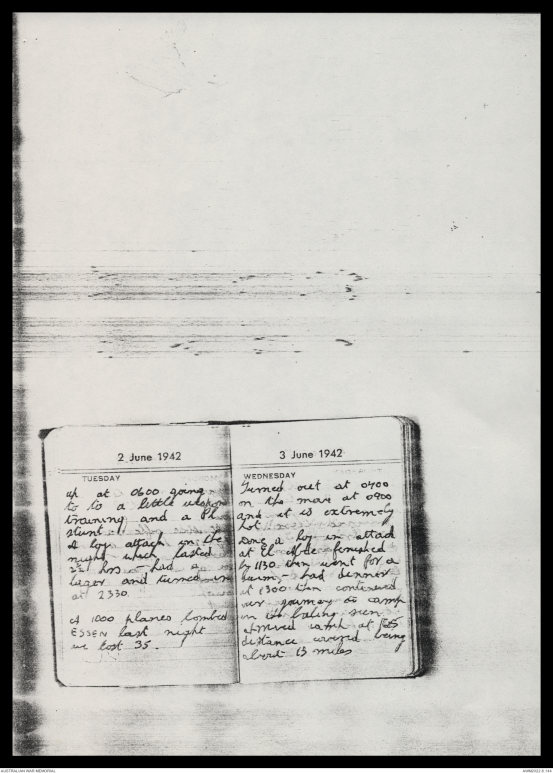 2 June 1942
TUESDAY
up at 0600 going
to to a little weapon
training and a Pl
stunt.
A Coy attack in the
night which lasted
2½ hrs had a
lager and turned in
at 2330
A 1000 planes bombed
ESSEN last night
we lost 35.
3 June 1942
WEDNESDAY
Turned out at 0400
on the move at 0900
and it is extremely
hot
Done a Coy in attack
at El finished
by 1130 then went for a
swim, - had dinner
at 1300 then continued
our journey to camp
in the boiling sun
arrived camp at
distance covered being
about 13 miles
AUSTRALIAN WAR MEMORIAL